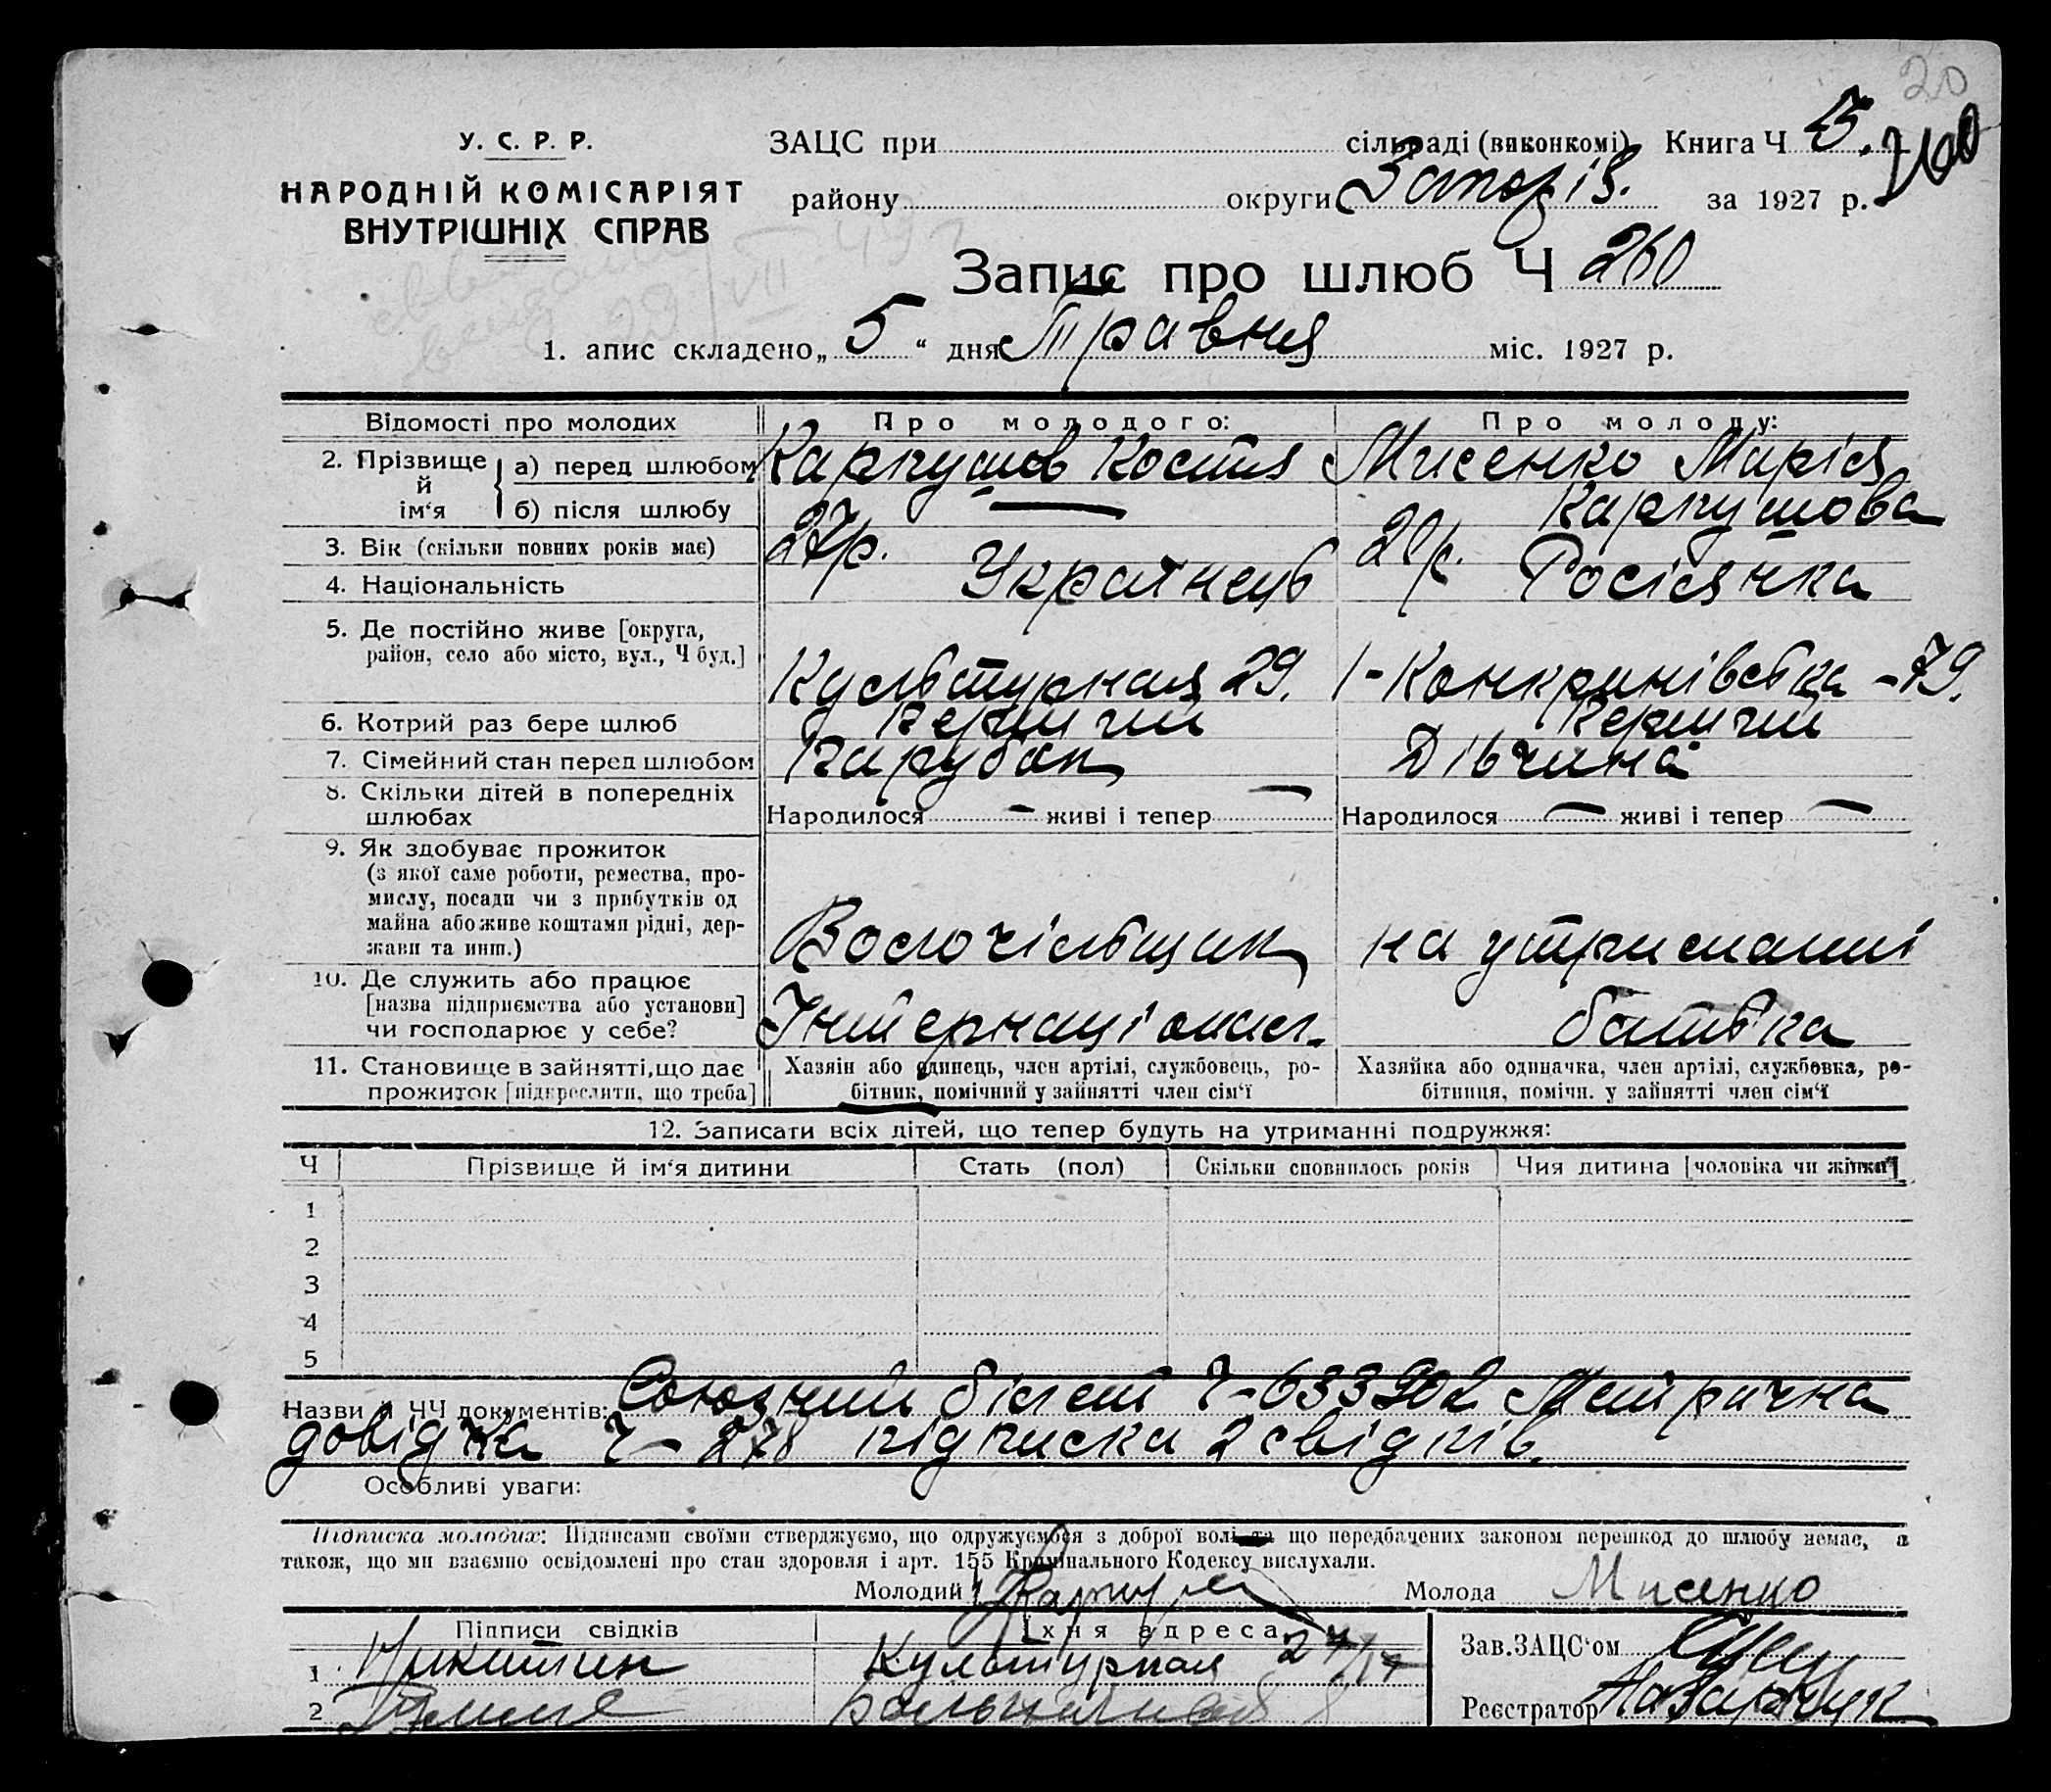 20
У. С. Р. Р.
НАРОДНІЙ КОМІСАРІЯТ
ВНУТРІШНІХ СПРАВ
ЗАЦС при сільраді (виконкомі) Книга Ч 5. 260
району округи Запоріз. за 1927 р.
Запис про шлюб Ч 260
1. апис складено „ 5 “ дня Травня міс. 1927 р.
Відомості про молодих Про молодого: Про молоду:
2. Прізвище й ім‘я а) перед шлюбом Карпушов Костя Мисенко Марія
б) після шлюбу Карпушова
3. Вік (скільки повних років має) 27р. 20р.
4. Національність Украінець Росіянка
5. Де постійно живе [округа,
район, село або місто, вул., Ч буд.] Культурная 29. 1-Канкринівська -79.
6. Котрий раз бере шлюб Перший Перший
7. Сімейний стан перед шлюбом Парубок Дівчина
8. Скільки дітей в попередніх
шлюбах Народилося — живі і тепер — Народилося — живі і тепер —
9. Як здобуває прожиток
(з якої саме роботи, ремества, про-
мислу, посади чи з прибутків од
майна або живе коштами рідні, дер-
жави та инш.) Волочільщик на утриманні
10. Де служить або працює
[назва підприємства або установи]
чи господарює у себе? Інтернаціонал. батька
11. Становище в зайнятті, що дає Хазяін або одинець, член артілі, службовець, ро- Хазяйка або одиначка, член артілі, службовка, ро-
прожиток [підкреслити, що треба] бітник, помічний у зайнятті член сім‘ї бітниця, помічн. у зайнятті член сім‘ї
12. Записати всіх дітей, що тепер будуть на утриманні подружжя:
Ч Прізвище й ім‘я дитини Стать (пол) Скільки сповнилось років Чия дитина [чоловіка чи жінки]
1
2
3
4
5
Назви й ЧЧ документів: Союзний білет Ч-633902 Метрична
довідка Ч-278 підписка 2 свідків.
Особливі уваги:
Підписка молодих: Підписами своїми стверджуємо, що одружуємося з доброї волі та що передбачених законом перешкод до шлюбу немає, а
також, що ми взаємно освідомлені про стан здоровля і арт. 155 Кримінального Кодексу вислухали.
Молодий Молода Мисенко
Підписи свідків Їхня адреса Зав. ЗАЦС‘ом
1 Никитин Культурная
2 Реєстратор Назарчук